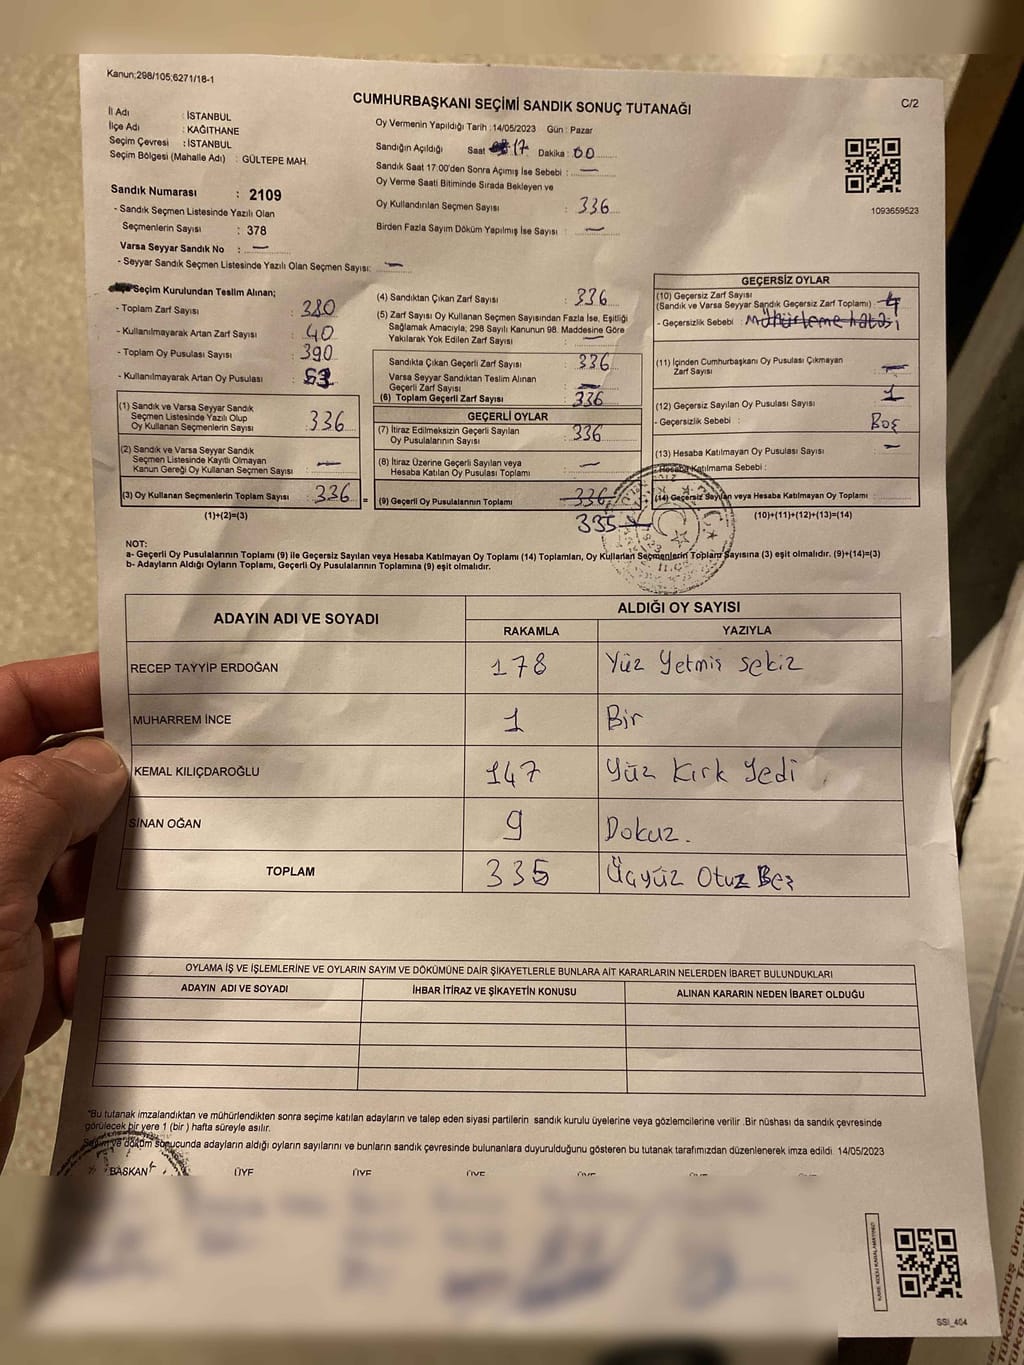 Kanun;298/105;6271/18-1
CUMHURBAŞKANI SEÇİMİ SANDIK SONUÇ TUTANAĞI
C/2
İl Adı : İSTANBUL
İlçe Adı : KAĞITHANE
Seçim Çevresi : İSTANBUL
Seçim Bölgesi (Mahalle Adı) : GÜLTEPE MAH.
Sandık Numarası : 2109
- Sandık Seçmen Listesinde Yazılı Olan
Seçmenlerin Sayısı : 378
Varsa Seyyar Sandık No : —
- Seyyar Sandık Seçmen Listesinde Yazılı Olan Seçmen Sayısı: —
Oy Vermenin Yapıldığı Tarih :14/05/2023 Gün : Pazar
Sandığın Açıldığı Saat 17 Dakika : 00
Sandık Saat 17:00'den Sonra Açımış İse Sebebi : —
Oy Verme Saati Bitiminde Sırada Bekleyen ve
Oy Kullandırılan Seçmen Sayısı : 336
Birden Fazla Sayım Döküm Yapılmış İse Sayısı : —
1093659523
Seçim Kurulundan Teslim Alınan;
- Toplam Zarf Sayısı : 380
- Kullanılmayarak Artan Zarf Sayısı : 40
- Toplam Oy Pusulası Sayısı : 390
- Kullanılmayarak Artan Oy Pusulası :
(1) Sandık ve Varsa Seyyar Sandık
Seçmen Listesinde Yazılı Olup
Oy Kullanan Seçmenlerin Sayısı : 336
(2) Sandık ve Varsa Seyyar Sandık
Seçmen Listesinde Kayıtlı Olmayan
Kanun Gereği Oy Kullanan Seçmen Sayısı : —
(3) Oy Kullanan Seçmenlerin Toplam Sayısı : 336 =
(1)+(2)=(3)
(4) Sandıktan Çıkan Zarf Sayısı : 336
(5) Zarf Sayısı Oy Kullanan Seçmen Sayısından Fazla İse, Eşitliği
Sağlamak Amacıyla; 298 Sayılı Kanunun 98. Maddesine Göre
Yakılarak Yok Edilen Zarf Sayısı : —
Sandıkta Çıkan Geçerli Zarf Sayısı : 336
Varsa Seyyar Sandıktan Teslim Alınan
Geçerli Zarf Sayısı : —
(6) Toplam Geçerli Zarf Sayısı : 336
GEÇERLİ OYLAR
(7) İtiraz Edilmeksizin Geçerli Sayılan
Oy Pusulalarının Sayısı : 336
(8) İtiraz Üzerine Geçerli Sayılan veya
Hesaba Katılan Oy Pusulası Toplamı : —
(9) Geçerli Oy Pusulalarının Toplamı : 336
335
GEÇERSİZ OYLAR
(10) Geçersiz Zarf Sayısı
(Sandık ve Varsa Seyyar Sandık Geçersiz Zarf Toplamı) :
- Geçersizlik Sebebi : Mühürleme hatası
(11) İçinden Cumhurbaşkanı Oy Pusulası Çıkmayan
Zarf Sayısı : —
(12) Geçersiz Sayılan Oy Pusulası Sayısı : 1
- Geçersizlik Sebebi : Boş
(13) Hesaba Katılmayan Oy Pusulası Sayısı : —
- Hesaba Katılmama Sebebi :
(14) Geçersiz Sayılan veya Hesaba Katılmayan Oy Toplamı :
(10)+(11)+(12)+(13)=(14)
NOT:
a- Geçerli Oy Pusulalarının Toplamı (9) ile Geçersiz Sayılan veya Hesaba Katılmayan Oy Toplamı (14) Toplamları, Oy Kullanan Seçmenlerin Toplam Sayısına (3) eşit olmalıdır. (9)+(14)=(3)
b- Adayların Aldığı Oyların Toplamı, Geçerli Oy Pusulalarının Toplamına (9) eşit olmalıdır.
ADAYIN ADI VE SOYADI
ALDIĞI OY SAYISI
RAKAMLA YAZIYLA
RECEP TAYYİP ERDOĞAN 178 Yüz Yetmiş sekiz
MUHARREM İNCE 1 Bir
KEMAL KILIÇDAROĞLU 147 Yüz Kırk Yedi
SİNAN OĞAN 9 Dokuz.
TOPLAM 335 Üçyüz Otuz Beş
OYLAMA İŞ VE İŞLEMLERİNE VE OYLARIN SAYIM VE DÖKÜMÜNE DAİR ŞİKAYETLERLE BUNLARA AİT KARARLARIN NELERDEN İBARET BULUNDUKLARI
ADAYIN ADI VE SOYADI İHBAR İTİRAZ VE ŞİKAYETİN KONUSU ALINAN KARARIN NEDEN İBARET OLDUĞU
"Bu tutanak imzalandıktan ve mühürlendikten sonra seçime katılan adayların ve talep eden siyasi partilerin sandık kurulu üyelerine veya gözlemcilerine verilir .Bir nüshası da sandık çevresinde
görülecek bir yere 1 (bir ) hafta süreyle asılır.
Sayım ve döküm sonucunda adayların aldığı oyların sayılarını ve bunların sandık çevresinde bulunanlara duyurulduğunu gösteren bu tutanak tarafımızdan düzenlenerek imza edildi. 14/05/2023
BAŞKAN ÜYE ÜYE ÜYE ÜYE ÜYE ÜYE
SSI_404